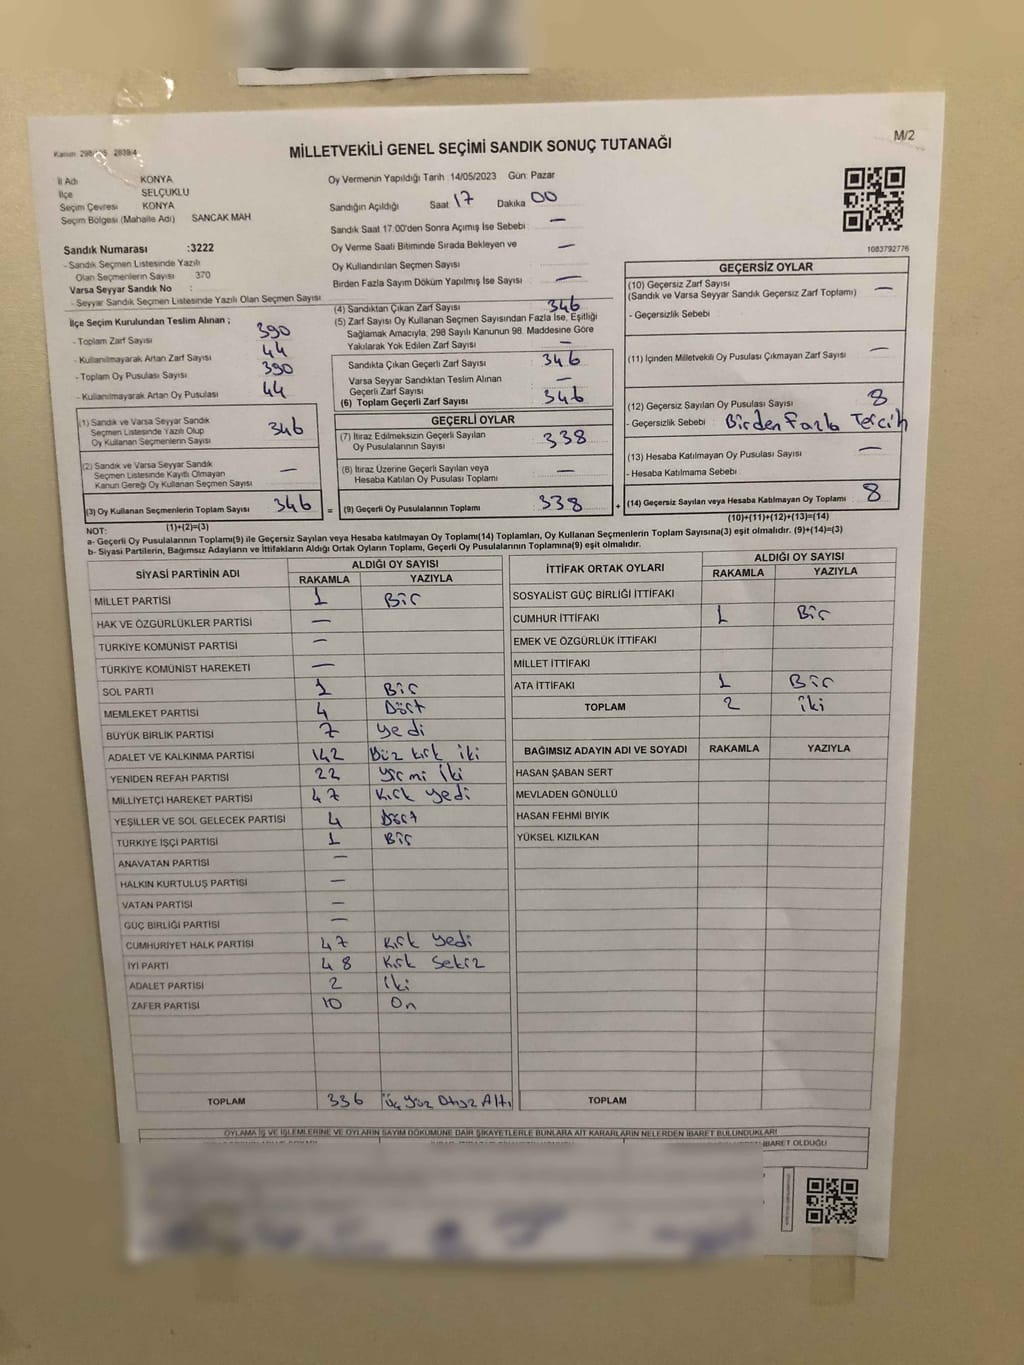 Kanun 298/105 2839/4
MİLLETVEKİLİ GENEL SEÇİMİ SANDIK SONUÇ TUTANAĞI
M/2
İl Adı KONYA
İlçe SELÇUKLU
Seçim Çevresi KONYA
Seçim Bölgesi (Mahalle Adı) SANCAK MAH
Sandık Numarası :3222
- Sandık Seçmen Listesinde Yazılı
Olan Seçmenlerin Sayısı 370
Varsa Seyyar Sandık No :
- Seyyar Sandık Seçmen Listesinde Yazılı Olan Seçmen Sayısı
Oy Vermenin Yapıldığı Tarih :14/05/2023 Gün: Pazar
Sandığın Açıldığı Saat 17 Dakika 00
Sandık Saat 17.00'den Sonra Açımış İse Sebebi : —
Oy Verme Saati Bitiminde Sırada Bekleyen ve
Oy Kullandırılan Seçmen Sayısı : —
Birden Fazla Sayım Döküm Yapılmış İse Sayısı : —
1083792776
İlçe Seçim Kurulundan Teslim Alınan ;
- Toplam Zarf Sayısı : 390
- Kullanılmayarak Artan Zarf Sayısı : 44
- Toplam Oy Pusulası Sayısı : 390
- Kullanılmayarak Artan Oy Pusulası : 44
(1) Sandık ve Varsa Seyyar Sandık
Seçmen Listesinde Yazılı Olup
Oy Kullanan Seçmenlerin Sayısı 346
(2) Sandık ve Varsa Seyyar Sandık
Seçmen Listesinde Kayıtlı Olmayan
Kanun Gereği Oy Kullanan Seçmen Sayısı —
(3) Oy Kullanan Seçmenlerin Toplam Sayısı 346
(1)+(2)=(3)
(4) Sandıktan Çıkan Zarf Sayısı 346
(5) Zarf Sayısı Oy Kullanan Seçmen Sayısından Fazla İse, Eşitliği
Sağlamak Amacıyla, 298 Sayılı Kanunun 98. Maddesine Göre
Yakılarak Yok Edilen Zarf Sayısı : —
Sandıkta Çıkan Geçerli Zarf Sayısı : 346
Varsa Seyyar Sandıktan Teslim Alınan
Geçerli Zarf Sayısı : —
(6) Toplam Geçerli Zarf Sayısı : 346
GEÇERLİ OYLAR
(7) İtiraz Edilmeksizin Geçerli Sayılan
Oy Pusulalarının Sayısı : 338
(8) İtiraz Üzerine Geçerli Sayılan veya
Hesaba Katılan Oy Pusulası Toplamı : —
= (9) Geçerli Oy Pusulalarının Toplamı : 338 +
GEÇERSİZ OYLAR
(10) Geçersiz Zarf Sayısı
(Sandık ve Varsa Seyyar Sandık Geçersiz Zarf Toplamı) : —
- Geçersizlik Sebebi :
(11) İçinden Milletvekili Oy Pusulası Çıkmayan Zarf Sayısı : —
(12) Geçersiz Sayılan Oy Pusulası Sayısı : 8
- Geçersizlik Sebebi : Birden Fazla Tercih
(13) Hesaba Katılmayan Oy Pusulası Sayısı : —
- Hesaba Katılmama Sebebi :
(14) Geçersiz Sayılan veya Hesaba Katılmayan Oy Toplamı : 8
(10)+(11)+(12)+(13)=(14)
NOT:
a- Geçerli Oy Pusulalarının Toplamı(9) ile Geçersiz Sayılan veya Hesaba katılmayan Oy Toplamı(14) Toplamları, Oy Kullanan Seçmenlerin Toplam Sayısına(3) eşit olmalıdır. (9)+(14)=(3)
b- Siyasi Partilerin, Bağımsız Adayların ve İttifakların Aldığı Ortak Oyların Toplamı, Geçerli Oy Pusulalarının Toplamına(9) eşit olmalıdır.
SİYASİ PARTİNİN ADI ALDIĞI OY SAYISI
RAKAMLA YAZIYLA
MİLLET PARTİSİ 1 Bir
HAK VE ÖZGÜRLÜKLER PARTİSİ —
TÜRKİYE KOMÜNİST PARTİSİ —
TÜRKİYE KOMÜNİST HAREKETİ —
SOL PARTİ 1 Bir
MEMLEKET PARTİSİ 4 Dört
BÜYÜK BİRLİK PARTİSİ 7 yedi
ADALET VE KALKINMA PARTİSİ 142 Yüz kırk iki
YENİDEN REFAH PARTİSİ 22 yirmi iki
MİLLİYETÇİ HAREKET PARTİSİ 47 Kırk yedi
YEŞİLLER VE SOL GELECEK PARTİSİ 4 Dört
TÜRKİYE İŞÇİ PARTİSİ 1 Bir
ANAVATAN PARTİSİ —
HALKIN KURTULUŞ PARTİSİ —
VATAN PARTİSİ —
GÜÇ BİRLİĞİ PARTİSİ —
CUMHURİYET HALK PARTİSİ 47 Kırk yedi
İYİ PARTİ 48 Kırk Sekiz
ADALET PARTİSİ 2 iki
ZAFER PARTİSİ 10 On
TOPLAM 336 Üç Yüz Otuz Altı
İTTİFAK ORTAK OYLARI ALDIĞI OY SAYISI
RAKAMLA YAZIYLA
SOSYALİST GÜÇ BİRLİĞİ İTTİFAKI
CUMHUR İTTİFAKI 1 Bir
EMEK VE ÖZGÜRLÜK İTTİFAKI
MİLLET İTTİFAKI
ATA İTTİFAKI 1 Bir
TOPLAM 2 iki
BAĞIMSIZ ADAYIN ADI VE SOYADI RAKAMLA YAZIYLA
HASAN ŞABAN SERT
MEVLADEN GÖNÜLLÜ
HASAN FEHMİ BIYIK
YÜKSEL KIZILKAN
TOPLAM
OYLAMA İŞ VE İŞLEMLERİNE VE OYLARIN SAYIM DÖKÜMÜNE DAİR ŞİKAYETLERLE BUNLARA AİT KARARLARIN NELERDEN İBARET BULUNDUKLARI
İBARET OLDUĞU